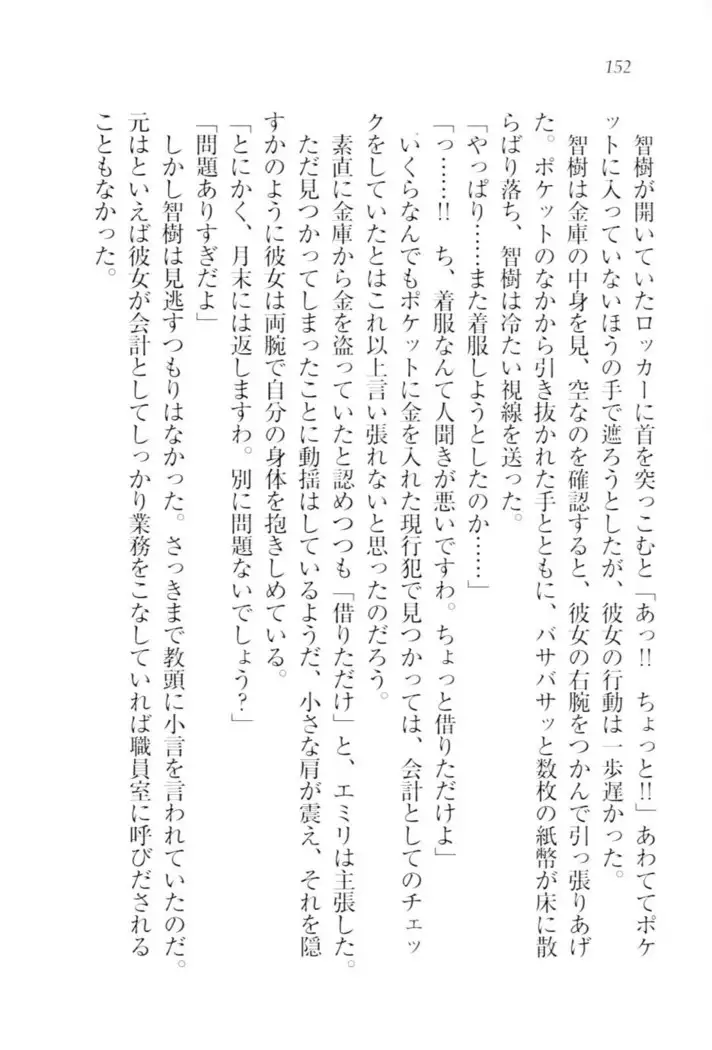 152
智樹が開いていたロッカーに首を突っこむと「あっ!! ちょっと!!」あわててポケ
ットに入っていないほうの手で遮ろうとしたが、彼女の行動は一歩遅かった。
智樹は金庫の中身を見、空なのを確認すると、彼女の右腕をつかんで引っ張りあげ
た。ポケットのなかから引き抜かれた手とともに、バサバサッと数枚の紙幣が床に散
らばり落ち、智樹は冷たい視線を送った。
「やっぱり……また着服しようとしたのか……」
「っ……!! ち、着服なんて人聞きが悪いですわ。ちょっと借りただけよ」
いくらなんでもポケットに金を入れた現行犯で見つかっては、会計としてのチェッ
クをしていたとはこれ以上言い張れないと思ったのだろう。
素直に金庫から金を盗っていたと認めつつも「借りただけ」と、エミリは主張した。
ただ見つかってしまったことに動揺はしているようだ、小さな肩が震え、それを隠
すかのように彼女は両腕で自分の身体を抱きしめている。
「とにかく、月末には返しますわ。別に問題ないでしょう?」
「問題ありすぎだよ」
しかし智樹は見逃すつもりはなかった。さっきまで教頭に小言を言われていたのだ。
元はといえば彼女が会計としてしっかり業務をこなしていれば職員室に呼びだされる
こともなかった。